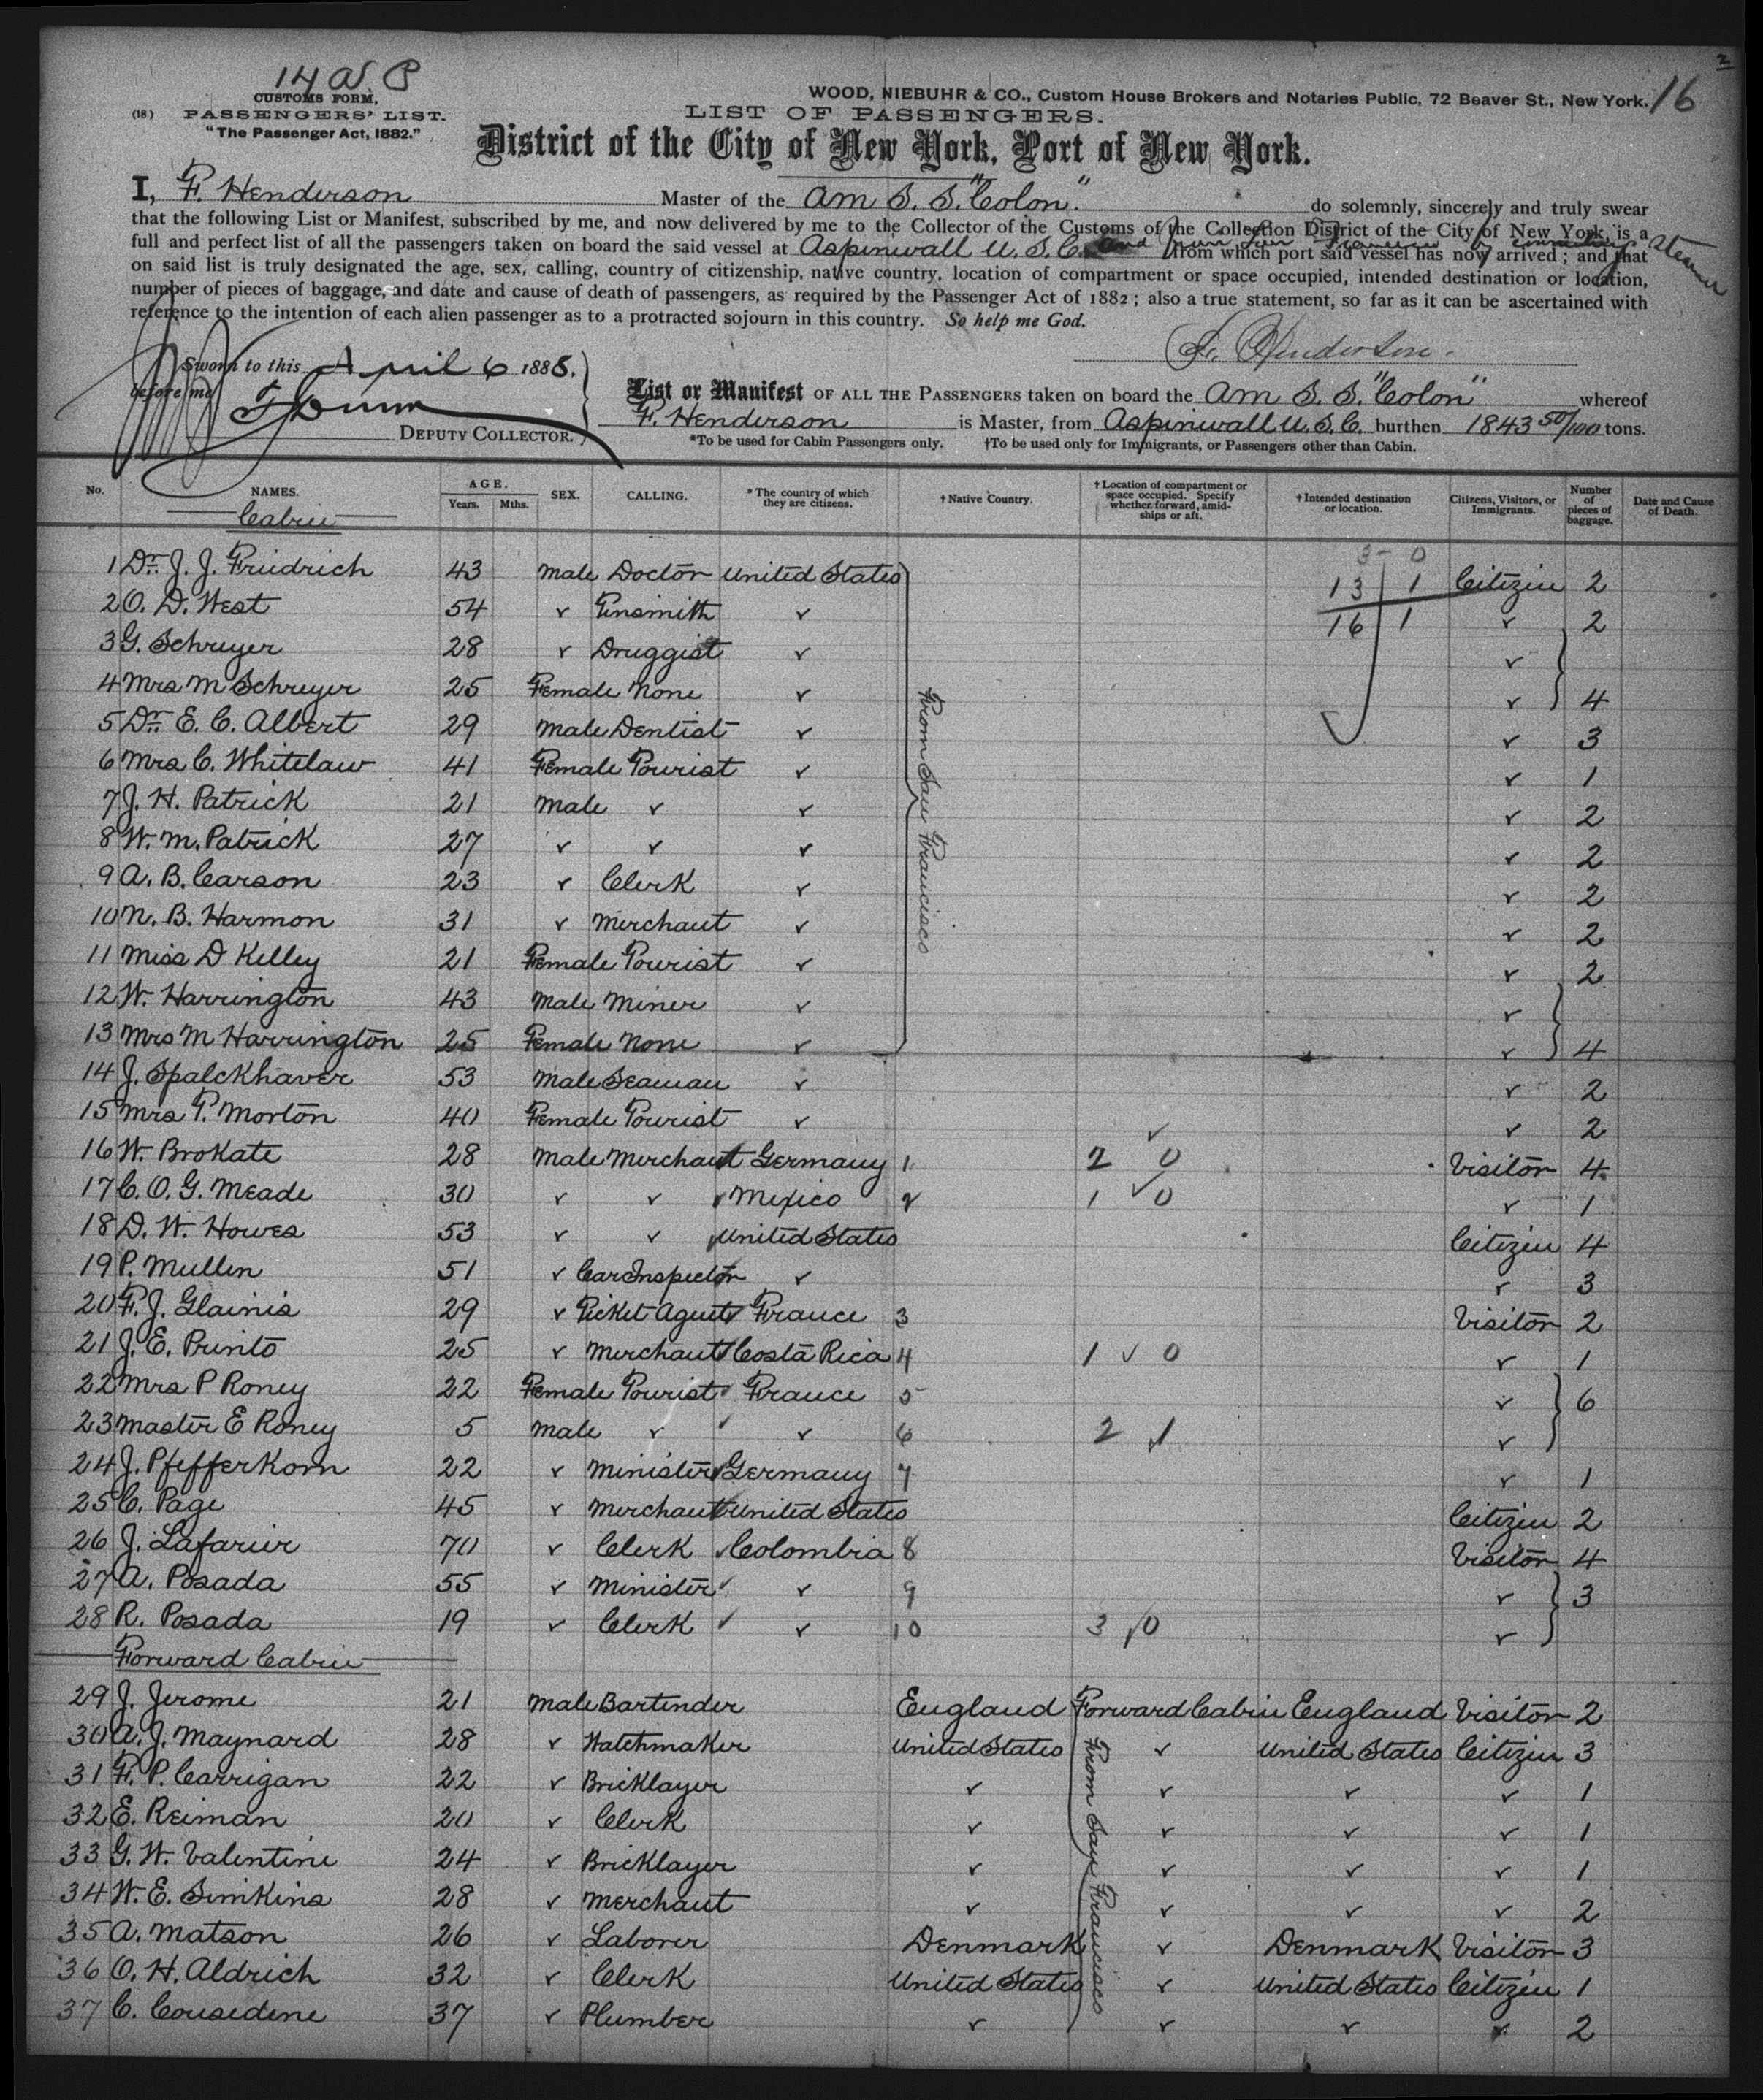 14 A P
2
16
CUSTOMS FORM,
(18) PASSENGERS' LIST.
"The Passenger Act, 1882."
WOOD, NIEBUHR & CO., Custom House Brokers and Notaries Public, 72 Beaver St., New York.
LIST OF PASSENGERS.
District of the City of New York, Port of New York.
I, F. Henderson Master of the Am S. S. "Colon" do solemnly, sincerely and truly swear
that the following List or Manifest, subscribed by me, and now delivered by me to the Collector of the Customs of the Collection District of the City of New York, is a
full and perfect list of all the passengers taken on board the said vessel at Aspinwall U. S. C. and from San Francisco by connecting steamer from which port said vessel has now arrived; and that
on said list is truly designated the age, sex, calling, country of citizenship, native country, location of compartment or space occupied, intended destination or location,
number of pieces of baggage, and date and cause of death of passengers, as required by the Passenger Act of 1882; also a true statement, so far as it can be ascertained with
reference to the intention of each alien passenger as to a protracted sojourn in this country. So help me God.
F. Henderson.
Sworn to this April 6 1888,
before me
DEPUTY COLLECTOR.
List or Manifest OF ALL THE PASSENGERS taken on board the Am S. S. "Colon" whereof
F. Henderson is Master, from Aspinwall U. S. C. burthen 1843 50/100 tons.
*To be used for Cabin Passengers only. †To be used only for Immigrants, or Passengers other than Cabin.
No. NAMES. AGE. Years. Mths. SEX. CALLING. * The country of which they are citizens. † Native Country. † Location of compartment or space occupied. Specify whether forward, amidships or aft. † Intended destination or location. Citizens, Visitors, or Immigrants. Number of pieces of baggage. Date and Cause of Death.
Cabin
3 - 0
1 Dr. J. J. Friedrich 43 Male Doctor United States 13 1 Citizen 2
2 O. D. West 54 ✓ Tinsmith ✓ 16 1 ✓ 2
3 G. Schreyer 28 ✓ Druggist ✓ ✓
4 Mrs M Schreyer 25 Female None ✓ ✓ 4
5 Dr. E. C. Albert 29 Male Dentist ✓ ✓ 3
6 Mrs C. Whitelaw 41 Female Tourist ✓ ✓ 1
7 J. H. Patrick 21 Male ✓ ✓ ✓ 2
8 W. M. Patrick 27 ✓ ✓ ✓ ✓ 2
9 A. B. Carson 23 ✓ Clerk ✓ ✓ 2
10 N. B. Harmon 31 ✓ Merchant ✓ ✓ 2
11 Miss D Kelley 21 Female Tourist ✓ ✓ 2
12 W. Harrington 43 Male Miner ✓ ✓
13 Mrs M Harrington 25 Female None ✓ ✓ 4
From San Francisco
14 J. Spalckhaver 53 Male Seaman ✓ ✓ 2
15 Mrs T. Morton 40 Female Tourist ✓ ✓ 2
16 W. Brokate 28 Male Merchant Germany 1 2 ✓ 0 Visitor 4
17 C. O. G. Meade 30 ✓ ✓ Mexico 2 1 ✓ 0 ✓ 1
18 D. W. Howes 53 ✓ ✓ United States Citizen 4
19 P. Mullen 51 ✓ Car Inspector ✓ ✓ 3
20 F. J. Glainis 29 ✓ Ticket Agent France 3 Visitor 2
21 J. E. Printo 25 ✓ Merchant Costa Rica 4 1 ✓ 0 ✓ 1
22 Mrs P Roney 22 Female Tourist France 5 ✓ 6
23 Master E Roney 5 Male ✓ ✓ 6 2 ✓ 1 ✓
24 J. Pfefferkorn 22 ✓ Minister Germany 7 ✓ 1
25 C. Page 45 ✓ Merchant United States Citizen 2
26 J. Lafarier 70 ✓ Clerk Colombia 8 Visitor 4
27 A. Posada 55 ✓ Minister ✓ 9 ✓ 3
28 R. Posada 19 ✓ Clerk ✓ 10 3 ✓ 0 ✓
Forward Cabin
29 J. Jerome 21 Male Bartender England Forward Cabin England Visitor 2
30 A. J. Maynard 28 ✓ Watchmaker United States ✓ United States Citizen 3
31 F. P. Carrigan 22 ✓ Bricklayer ✓ ✓ ✓ ✓ 1
32 E. Reiman 20 ✓ Clerk ✓ ✓ ✓ ✓ 1
33 G. W. Valentine 24 ✓ Bricklayer ✓ ✓ ✓ ✓ 1
34 W. E. Simkins 28 ✓ Merchant ✓ ✓ ✓ ✓ 2
35 A. Matson 26 ✓ Laborer Denmark ✓ Denmark Visitor 3
36 O. H. Aldrich 32 ✓ Clerk United States ✓ United States Citizen 1
37 C. Cousedine 37 ✓ Plumber ✓ ✓ ✓ ✓ 2
From San Francisco